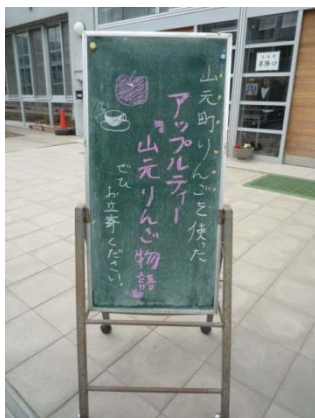 山元町りんごを使った
アップルティー
山元りんご物語
ぜひ
お立寄ください。